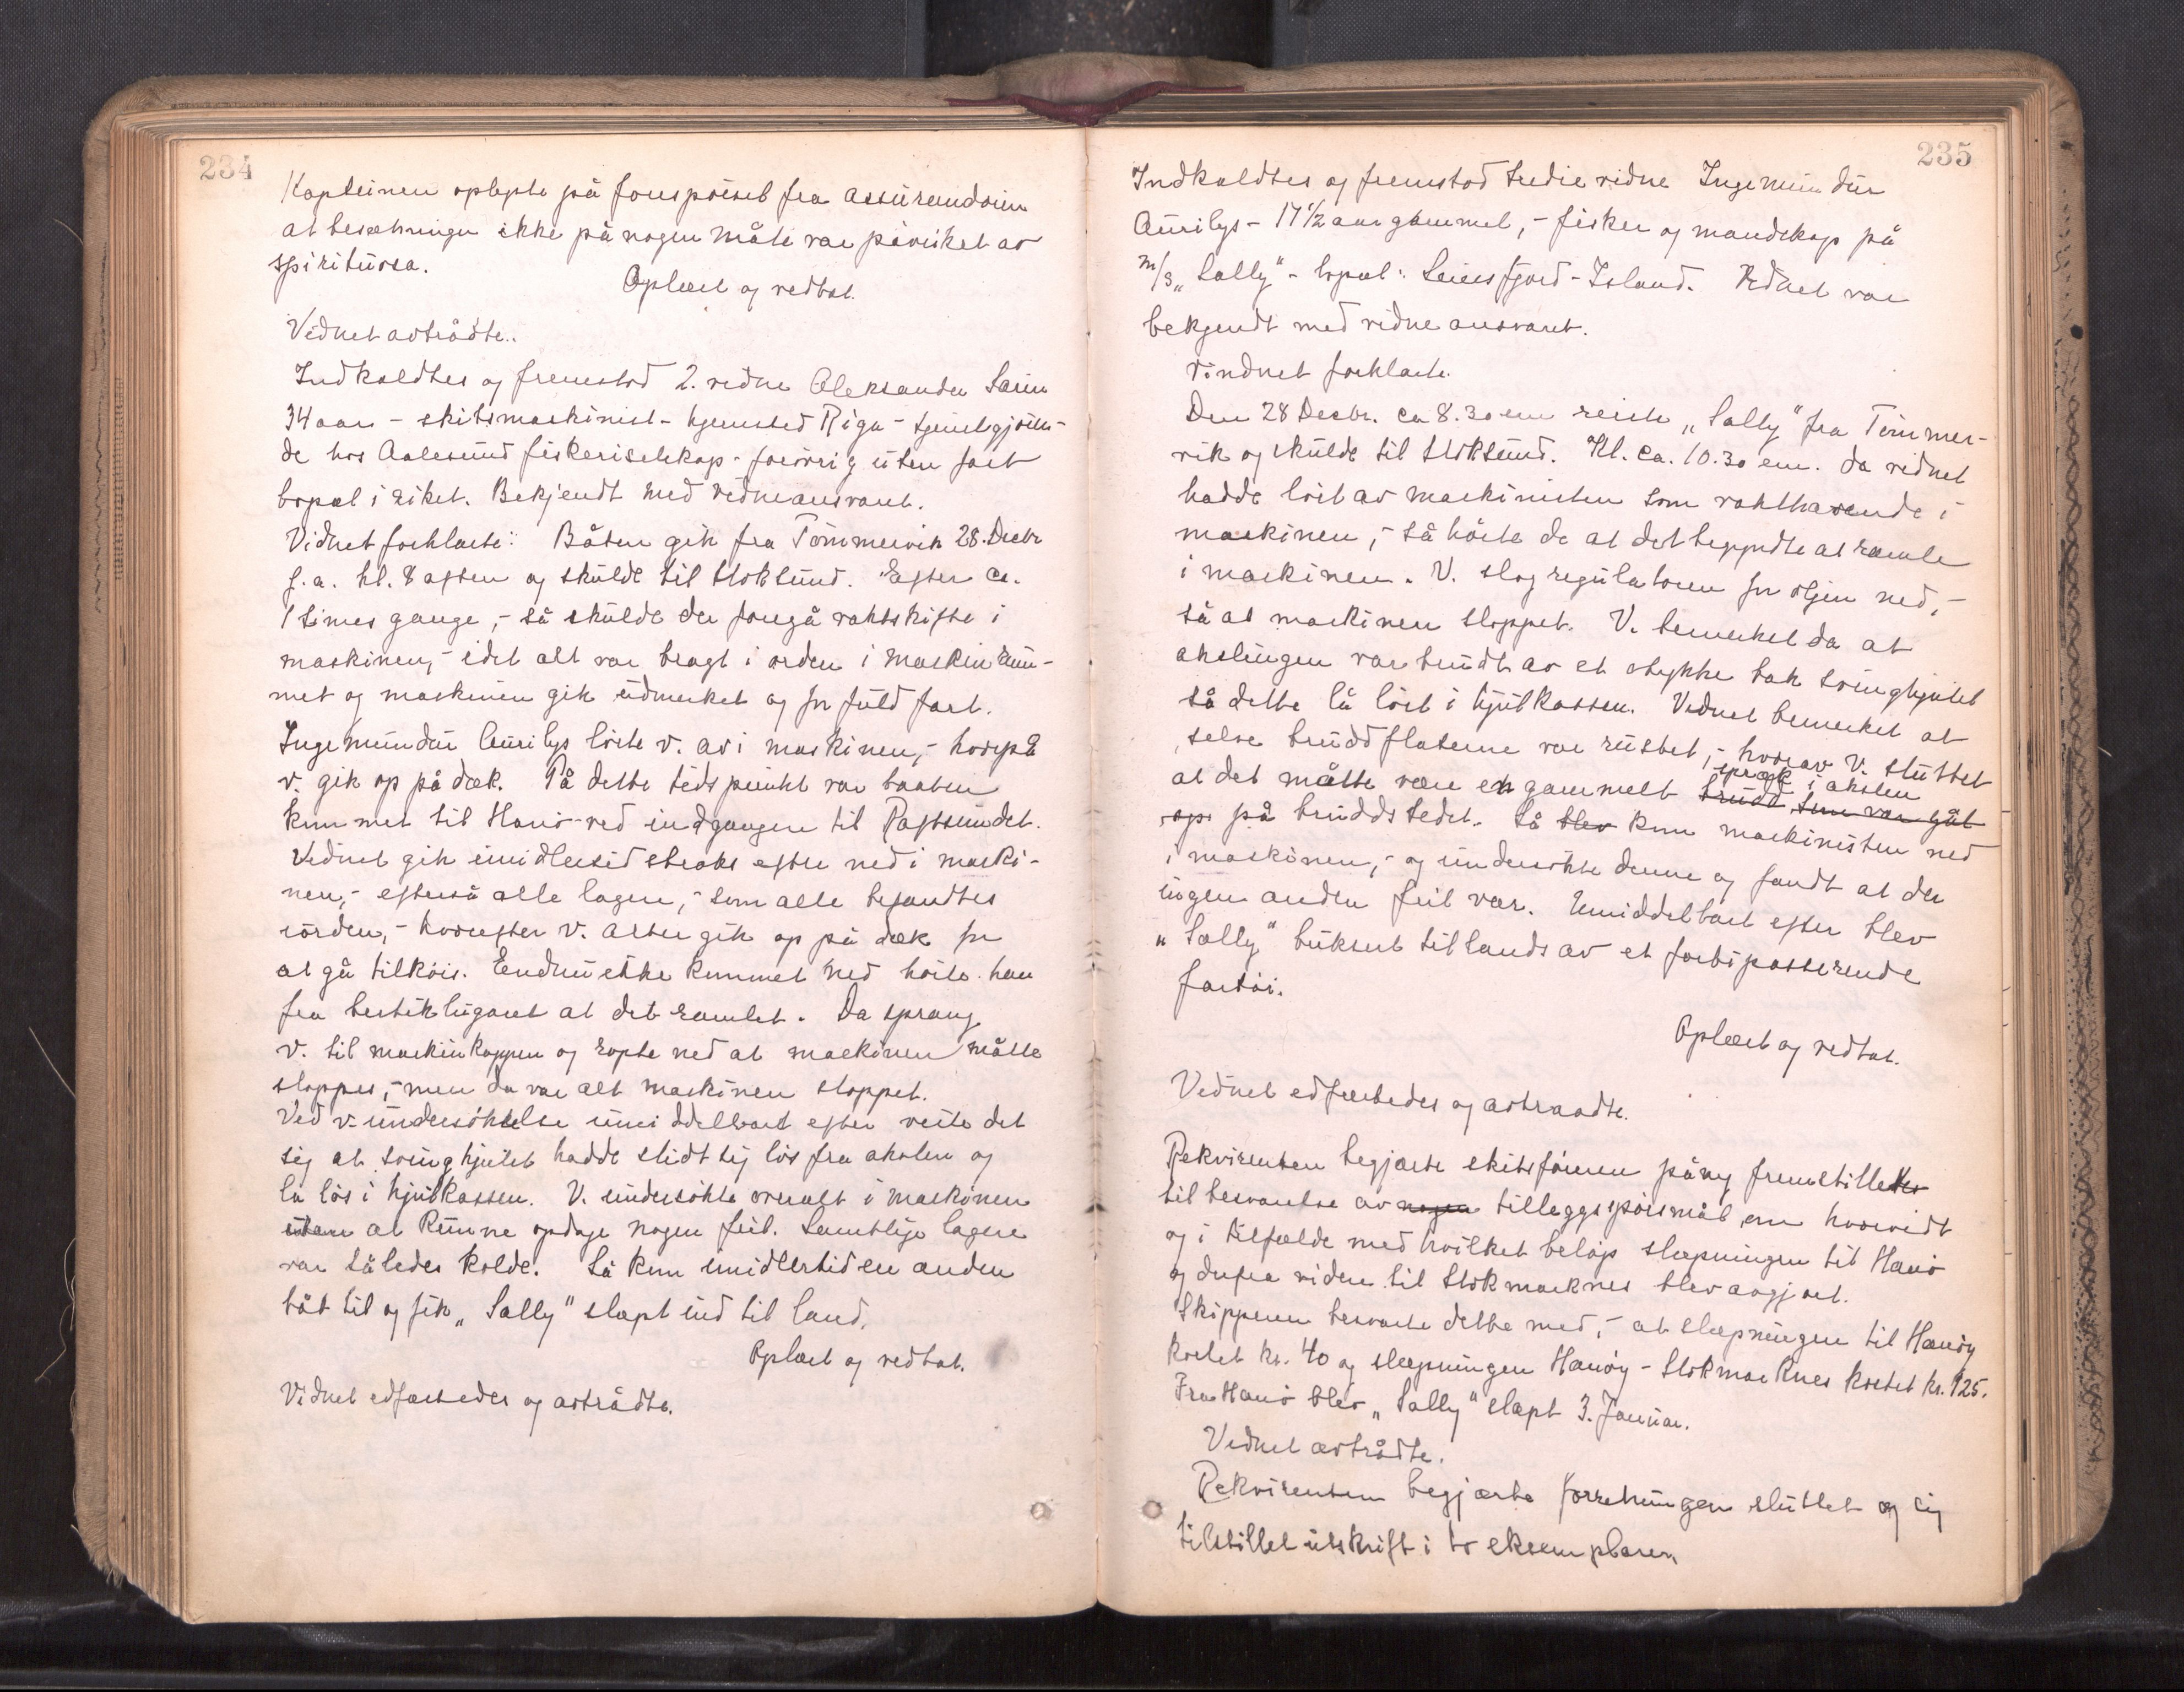 234
Kapteinen oplyste på forespørsel fra assurandøren
at besætningen ikke på nogen måte var påvirket av
spirituosa.
Oplæst og vedtat.
Vidnet avtrådte.
Indkaldtes og fremstod 2. vidne Aleksander
34 aar - skibsmaskinist - hjemsted Riga - tjenestgjøren-
de hos Aalesund fiskeriselskap - forøvrig uten fast
bopæl i riket. Bekjendt med vidneansvaret.
Vidnet forklarte: Båten gik fra Tømmervik 28. Decbr
f.a. kl. 8 aften og skulde til Stoksund. Efter ca.
1 times gange, - så skulde der foregå vaktskifte i
maskinen, - idet alt var bragt i orden i maskinrum-
met og maskinen gik udmerket og for fuld fart.
Ingemundur Aurilys løste v. av i maskinen, - hvorpå
v. gik op på dæk. På dette tidspunkt var baaten
kommet til Hanø ved indgangen til Raftsundet.
Vidnet gik imidlertid straks efter ned i maski-
nen, - efterså alle lagere, - som alle befandtes
iorden, - hvorefter v. atter gik op på dæk for
at gå tilkøis. Endnu ikke kommet ned hørte han
fra bestiklugaret at det ramlet. Da sprang
v. til maskinkappen og ropte ned at maskinen måtte
stoppes, - men da var alt maskinen stoppet.
Ved v. undersøkelse umiddelbart efter viste det
sig at svinghjulet hadde slidt sig løs fra akslen og
lå løs i hjulkassen. V. undersøkte overalt i maskinen
uten at kunne opdage nogen feil. Samtlige lagere
var således kolde. Så kom imidlertid en anden
båt til og fik "Sally" slæpt ind til land.
Oplæst og vedtat.
Vidnet edfæstedes og avtrådte.
235
Indkaldtes og fremstod tredie vidne Ingemundur
Aurilys - 17 1/2 aar gammel, - fisker og mandskap på
m/s "Sally" - bopæl: - Island. Vidnet var
bekjendt med vidneansvaret.
Vindnet forklarte.
Den 28 Decbr. ca 8.30 em reiste "Sally" fra Tømmer-
vik og skulde til Stoksund. Kl. ca. 10.30 em. da vidnet
hadde løst av maskinisten som vakthavende i
maskinen, - så hørte de at det begyndte at ramle
i maskinen. V. slog regulatoren for oljen ned, -
så at maskinen stoppet. V. bemerket da at
akslingen var brudt av et stykke bak svinghjulet
så dette lå løst i hjulkassen. Vidnet bemerket at
selve bruddflaterne var rustet, - hvorav v. sluttet
spræk i akslen
at det måtte være en gammelt brudd som var gåt
op på bruddstedet. Så blev kom maskinisten ned
i maskinen, - og undersøkte denne og fandt at der
ingen anden feil var. Umiddelbart efter blev
"Sally" bukseret tillands av et forbipasserende
fartøi.
Oplæst og vedtat.
Vidnet edfæstedes og avtraadte.
Rekvirenten begjærte skibsføreren påny fremstilletes
til besvarelse av nogen tilleggsspørsmål om hvorvidt
og i tilfælde med hvilket beløp slæpningen til Hanø
og derfra videre til Stokmarknes blev avgjort.
Skipperen besvarte dette med, - at slæpningen til Hanøy
kostet kr. 40 og slæpningen Hanøy - Stokmarknes kostet kr. 125.
Fra Hanø blev "Sally" slæpt 3. Januar.
Vidnet avtrådte.
Rekvirenten begjærte forretningen sluttet og sig
tilstillet utskrift i to eksemplarer.